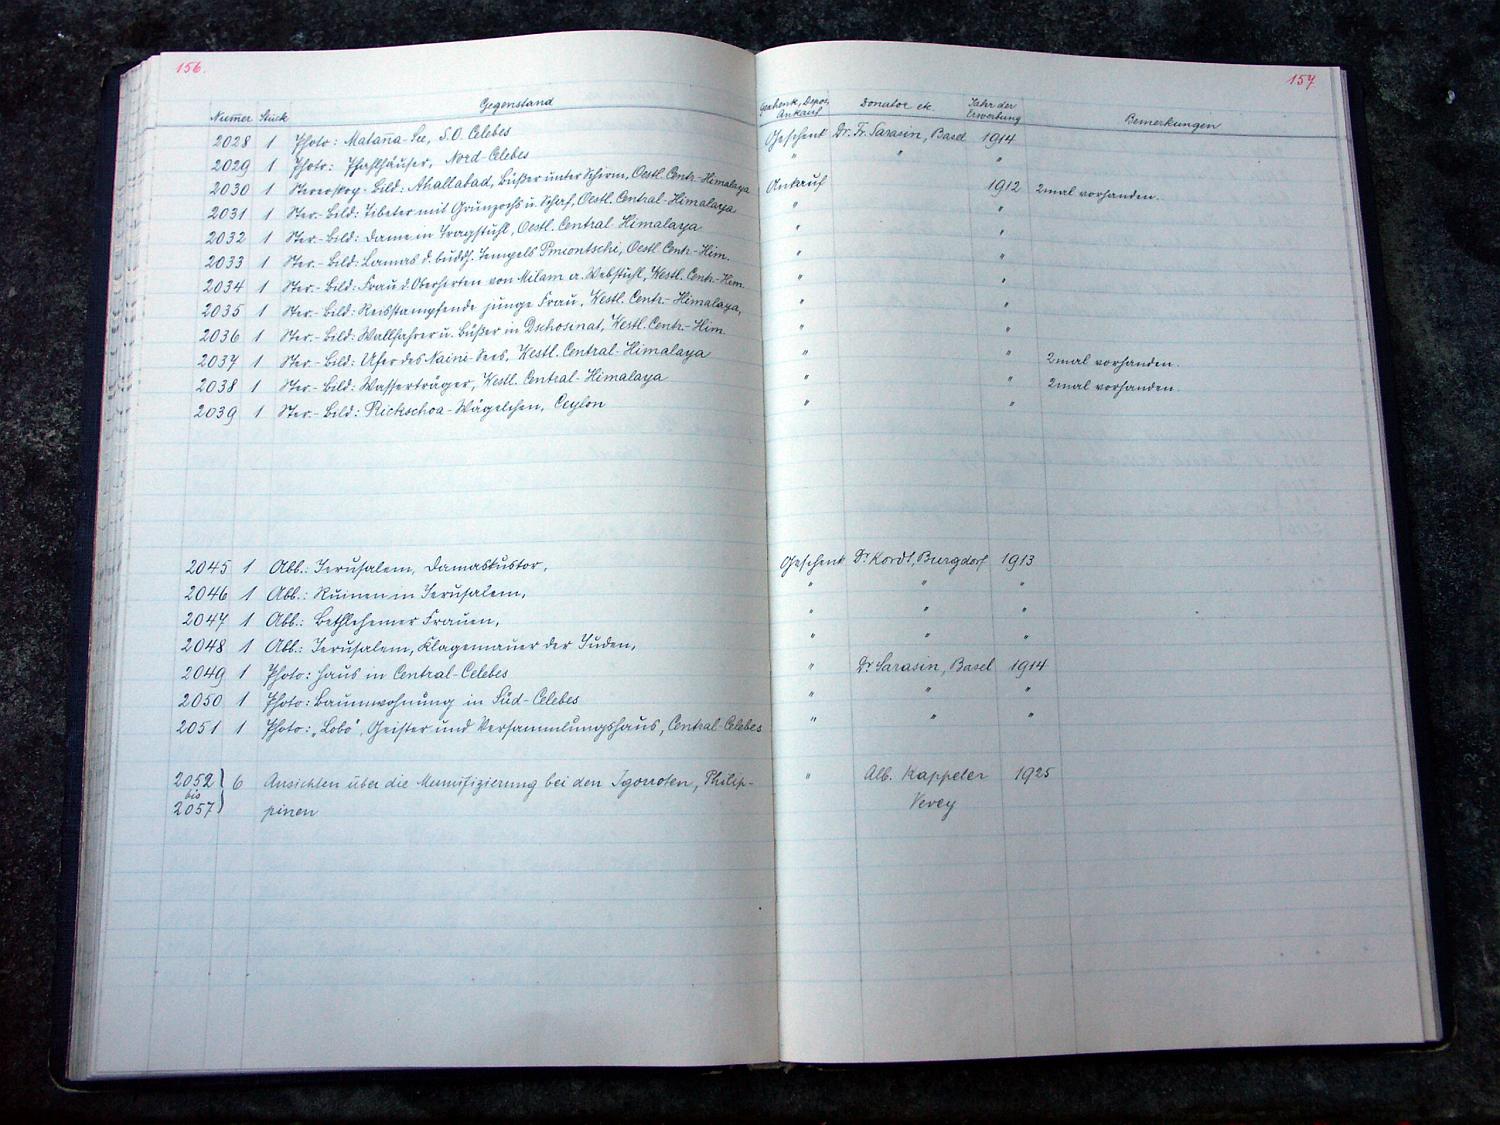 156.
157.
Numer Stück Gegenstand Geschenk, Depos, Ankauf Donator etc. Jahr der Erwerbung Bemerkungen
2028 1 Photo: Matana-See, S.O. Celebes Geschenk Dr. Fr. Sarasin, Basel 1914
2029 1 Photo: Pfahlhäuser, Nord-Celebes " " "
2030 1 Stereoskop-Bild: Ahallabad, Büßer unter Schirm, Oestl. Centr.-Himalaya Ankauf 1912 2mal vorhanden.
2031 1 Ster.-Bild: Tibeter mit Grunzochs u. Schaf, Oestl. Central-Himalaya " "
2032 1 Ster.-Bild: Dame in Tragstuhl, Oestl. Central Himalaya " "
2033 1 Ster.-Bild: Lamas d. buddh. Tempels Pmiontschi, Oestl Centr.-Him. " "
2034 1 Ster.-Bild: Frau d. Oberhirten von Milam a. Webstuhl, Westl. Centr.-Him. " "
2035 1 Ster.-Bild: Reisstampfende junge Frau, Westl. Centr.-Himalaya, " "
2036 1 Ster.-Bild: Wallfahrer u. Büßer in Dschosinat, Westl. Centr.-Him. " "
2037 1 Ster.-Bild: Ufer des Naini-Sees, Westl. Central-Himalaya " " 2mal vorhanden.
2038 1 Ster.-Bild: Wasserträger, Westl. Central-Himalaya " " 2mal vorhanden.
2039 1 Ster.-Bild: Rickschoa-Wägelchen, Ceylon " "
2045 1 Abb.: Jerusalem, Damaskustor, Geschenk Dr Kordt, Burgdorf 1913
2046 1 Abb.: Ruinen in Jerusalem, " " "
2047 1 Abb.: Bethlehemer Frauen, " " "
2048 1 Abb.: Jerusalem, Klagemauer der Juden, " " "
2049 1 Photo: Haus in Central-Celebes " Dr Sarasin, Basel 1914
2050 1 Photo: Baumwohnung in Süd-Celebes " " "
2051 1 Photo: "Lobo", Geister und Versammlungshaus, Central-Celebes " " "
2052 bis 2057 6 Ansichten über die Mumifizierung bei den Igorroten, Philip- " Alb. Kappeler 1925
pinen Vevey